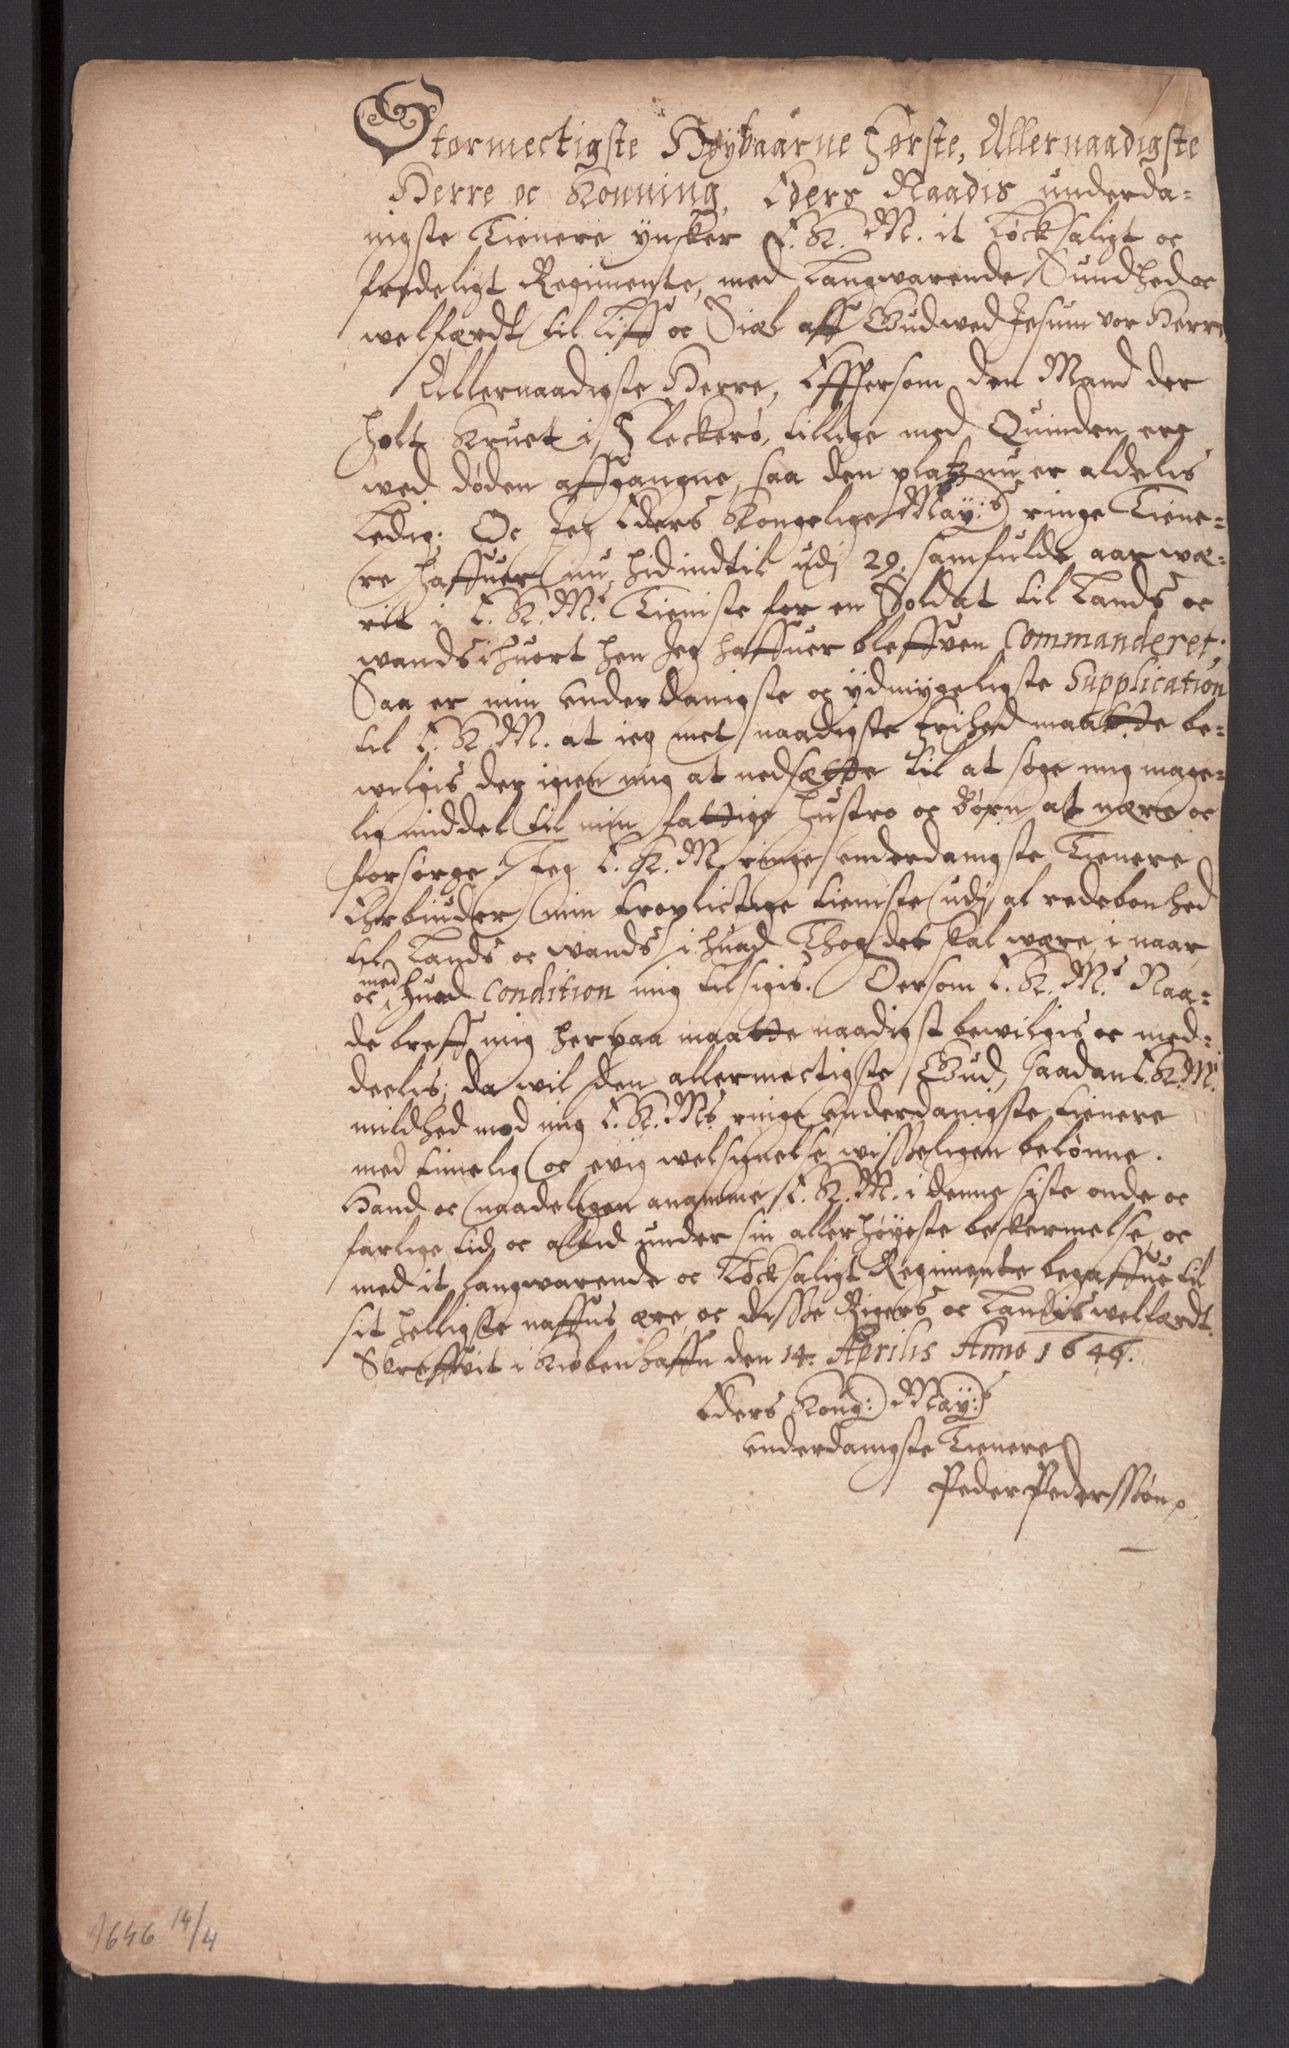 Stormectigste Høybaarne Første, Allernaadigste
Herre oc Konning, Eders Naadis underda-
nigste Tienere ynsker E. K. M. it Løcksaligt oc
fredeligt Regimente, med Langwarende Sundhed oc
welfærdt til Liff oc Siæl aff Gud wed Jesum vor Herre
Allernaadigste Herre, Effersom den Mand der
holt Kruet i Fleckerø, tillige med Quinden ere
wed døden affgangne, saa den platz nu er aldelis
Ledig. Oc Jeg Eders Kongelige May:s ringe Tiene-
re haffuer nu hidindtil udj 29 samfulde aar wæ-
rit i E. K. M.s Tieniste for en Soldat til Lands oc
wands ihuort hen Jeg haffuer bleffven Commanderet.
Saa er min underdanigste oc ydmygeligste Supplication
til E. K. M. at ieg met naadigste frihed maatte be-
wilgis der igien mig at nedsætte til at søge mig mage-
lig middel til min fattige Hustro oc Børn at nære oc
forsørge. Jeg E. K. M. ringe underdanigste Tienere
Erbiuder min troplictige tieniste udj al redebonhed
til Lands oc wands i huad Thog det skal wære, i naar
oc med huad Condition mig tilsigis. Dersom E. K. M.s Naa-
de breff mig her paa maatte naadigst bewilgis oc med-
deelis, da wil den allermectigste Gud, saadan E. K. M.
mildhed mod mig E. K. Ms. ringe underdanigste tienere
med timelig oc evig welsignelse wisseligen belønne.
Hand oc naadeligen anamme E. K. M. i denne siste onde oc
farlige tid oc altid under sin allerhøyeste beskermelse, oc
med it langwarende oc Løcksaligt Regimente begaffue til
sit helligste naffns ære, oc disse Rigers oc Landis welfærdt.
Skreffvit i Kiøbenhaffn den 14. Aprilis Anno 1646.
Eders Kong: May:s
underdanigste Tienere
Peder Pederssøn
1646 14/4